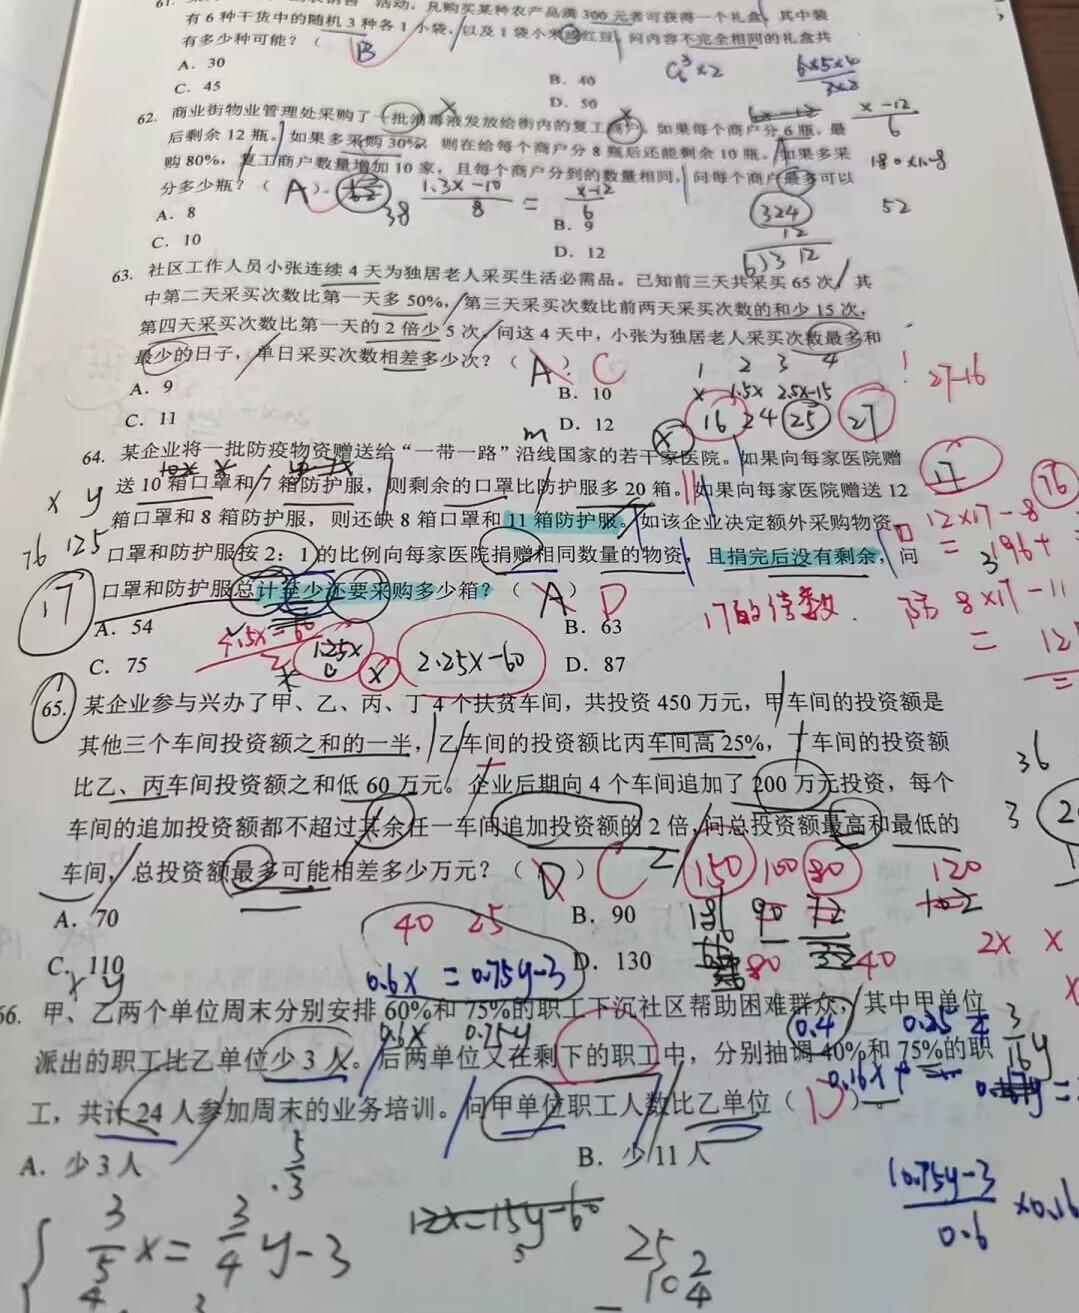 61. 活动,凡购买某种农产品满 300 元者可获得一个礼盒,其中装
有 6 种干货中的随机 3 种各 1 小袋,以及 1 袋小米或红豆,问内容不完全相同的礼盒共
有多少种可能?( B
A. 30
B. 40
C. 45
D. 50
C₆³×2
6×5×4
3×2
62. 商业街物业管理处采购了一批消毒液发放给街内的复工商户,如果每个商户分 6 瓶,最
后剩余 12 瓶。如果多采购 30%,则在给每个商户分 8 瓶后还能剩余 10 瓶。如果多采
购 80%,复工商户数量增加 10 家,且每个商户分到的数量相同,问每个商户最多可以
分多少瓶?( A )
x-12
6
180×1.8
38
1.3x-10
8
=
x-12
6
324
52
A. 8
B. 9
C. 10
D. 12
63. 社区工作人员小张连续 4 天为独居老人采买生活必需品。已知前三天共采买 65 次,其
中第二天采买次数比第一天多 50%,第三天采买次数比前两天采买次数的和少 15 次,
第四天采买次数比第一天的 2 倍少 5 次,问这 4 天中,小张为独居老人采买次数最多和
最少的日子,单日采买次数相差多少次?( A ) C
A. 9
B. 10
C. 11
D. 12
1 2 3 4
x 1.5x 2.5x-15
16 24 25 27
27-16
64. 某企业将一批防疫物资赠送给“一带一路”沿线国家的若干家医院。如果向每家医院赠
送 10 箱口罩和 7 箱防护服,则剩余的口罩比防护服多 20 箱。如果向每家医院赠送 12
箱口罩和 8 箱防护服,则还缺 8 箱口罩和 11 箱防护服。如该企业决定额外采购物资,
口罩和防护服按 2:1 的比例向每家医院捐赠相同数量的物资,且捐完后没有剩余,问
口罩和防护服总计至少还要采购多少箱?( A ) D
x y
76 125
17
m
x
17
76
12×17-8
= 196+
17的倍数
8×17-11
A. 54
B. 63
C. 75
D. 87
4.5x-60
2
1.25x
x
2.25x-60
65. 某企业参与兴办了甲、乙、丙、丁 4 个扶贫车间,共投资 450 万元,甲车间的投资额是
其他三个车间投资额之和的一半,乙车间的投资额比丙车间高 25%,丁车间的投资额
比乙、丙车间投资额之和低 60 万元。企业后期向 4 个车间追加了 200 万元投资,每个
车间的追加投资额都不超过其余任一车间追加投资额的 2 倍,问总投资额最高和最低的
车间,总投资额最多可能相差多少万元?( D ) C
A. 70
B. 90
C. 110
D. 130
36
3
150 100 80 120
40 25
80
40
2x x
x
x y
0.6x = 0.75y-3
66. 甲、乙两个单位周末分别安排 60%和 75%的职工下沉社区帮助困难群众,其中甲单位
派出的职工比乙单位少 3 人。后两单位又在剩下的职工中,分别抽调 40%和 75%的职
工,共计 24 人参加周末的业务培训。问甲单位职工人数比乙单位( D )。
0.6x 0.75y
0.4
0.25
3
16
y
0.16x+
A. 少 3 人
B. 少 11 人
5
3
3
5
x=
3
4
y-3
12x=15y-60
25
10
2
4
(0.75y-3
0.6
×0.16